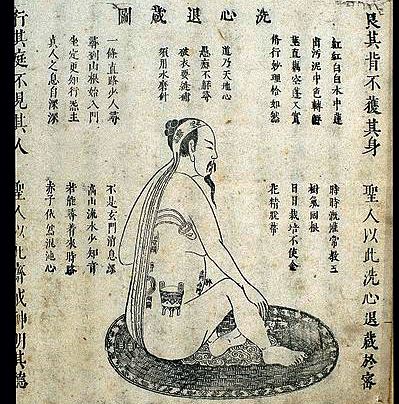 洗心退藏圖
艮其背不獲其身
聖人以此洗心退藏於密
紅紅白白水中蓮
出污泥中色轉鮮
莖直藕空蓬又實
修行妙理恰如然
時時溉灌常教玉
樹氣固根
日日栽培不使金
花精脫蒂
道乃天地心
愚痴不解尋
破衣要線補
須用水磨針
一條直路少人尋
尋到山根始入門
坐定更知行氣主
真人之息自深深
不是玄門消息深
高山流水少知音
若能尋着來時路
赤子依然混沌心
行其庭不見其人
聖人以此齋戒神明其德